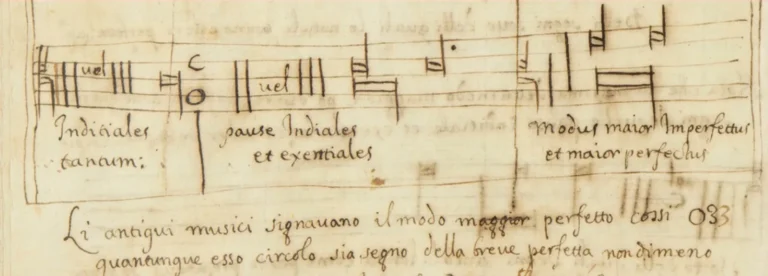 vel
vel
Indiciales
tantum:
pause Indiales
et exentiales
modus maior Imperfectus
et maior perfectus
Li antiqui musici signavano il modo maggior perfetto cossi O33
quantunque esso circolo sia segno della breve perfetta nondimeno